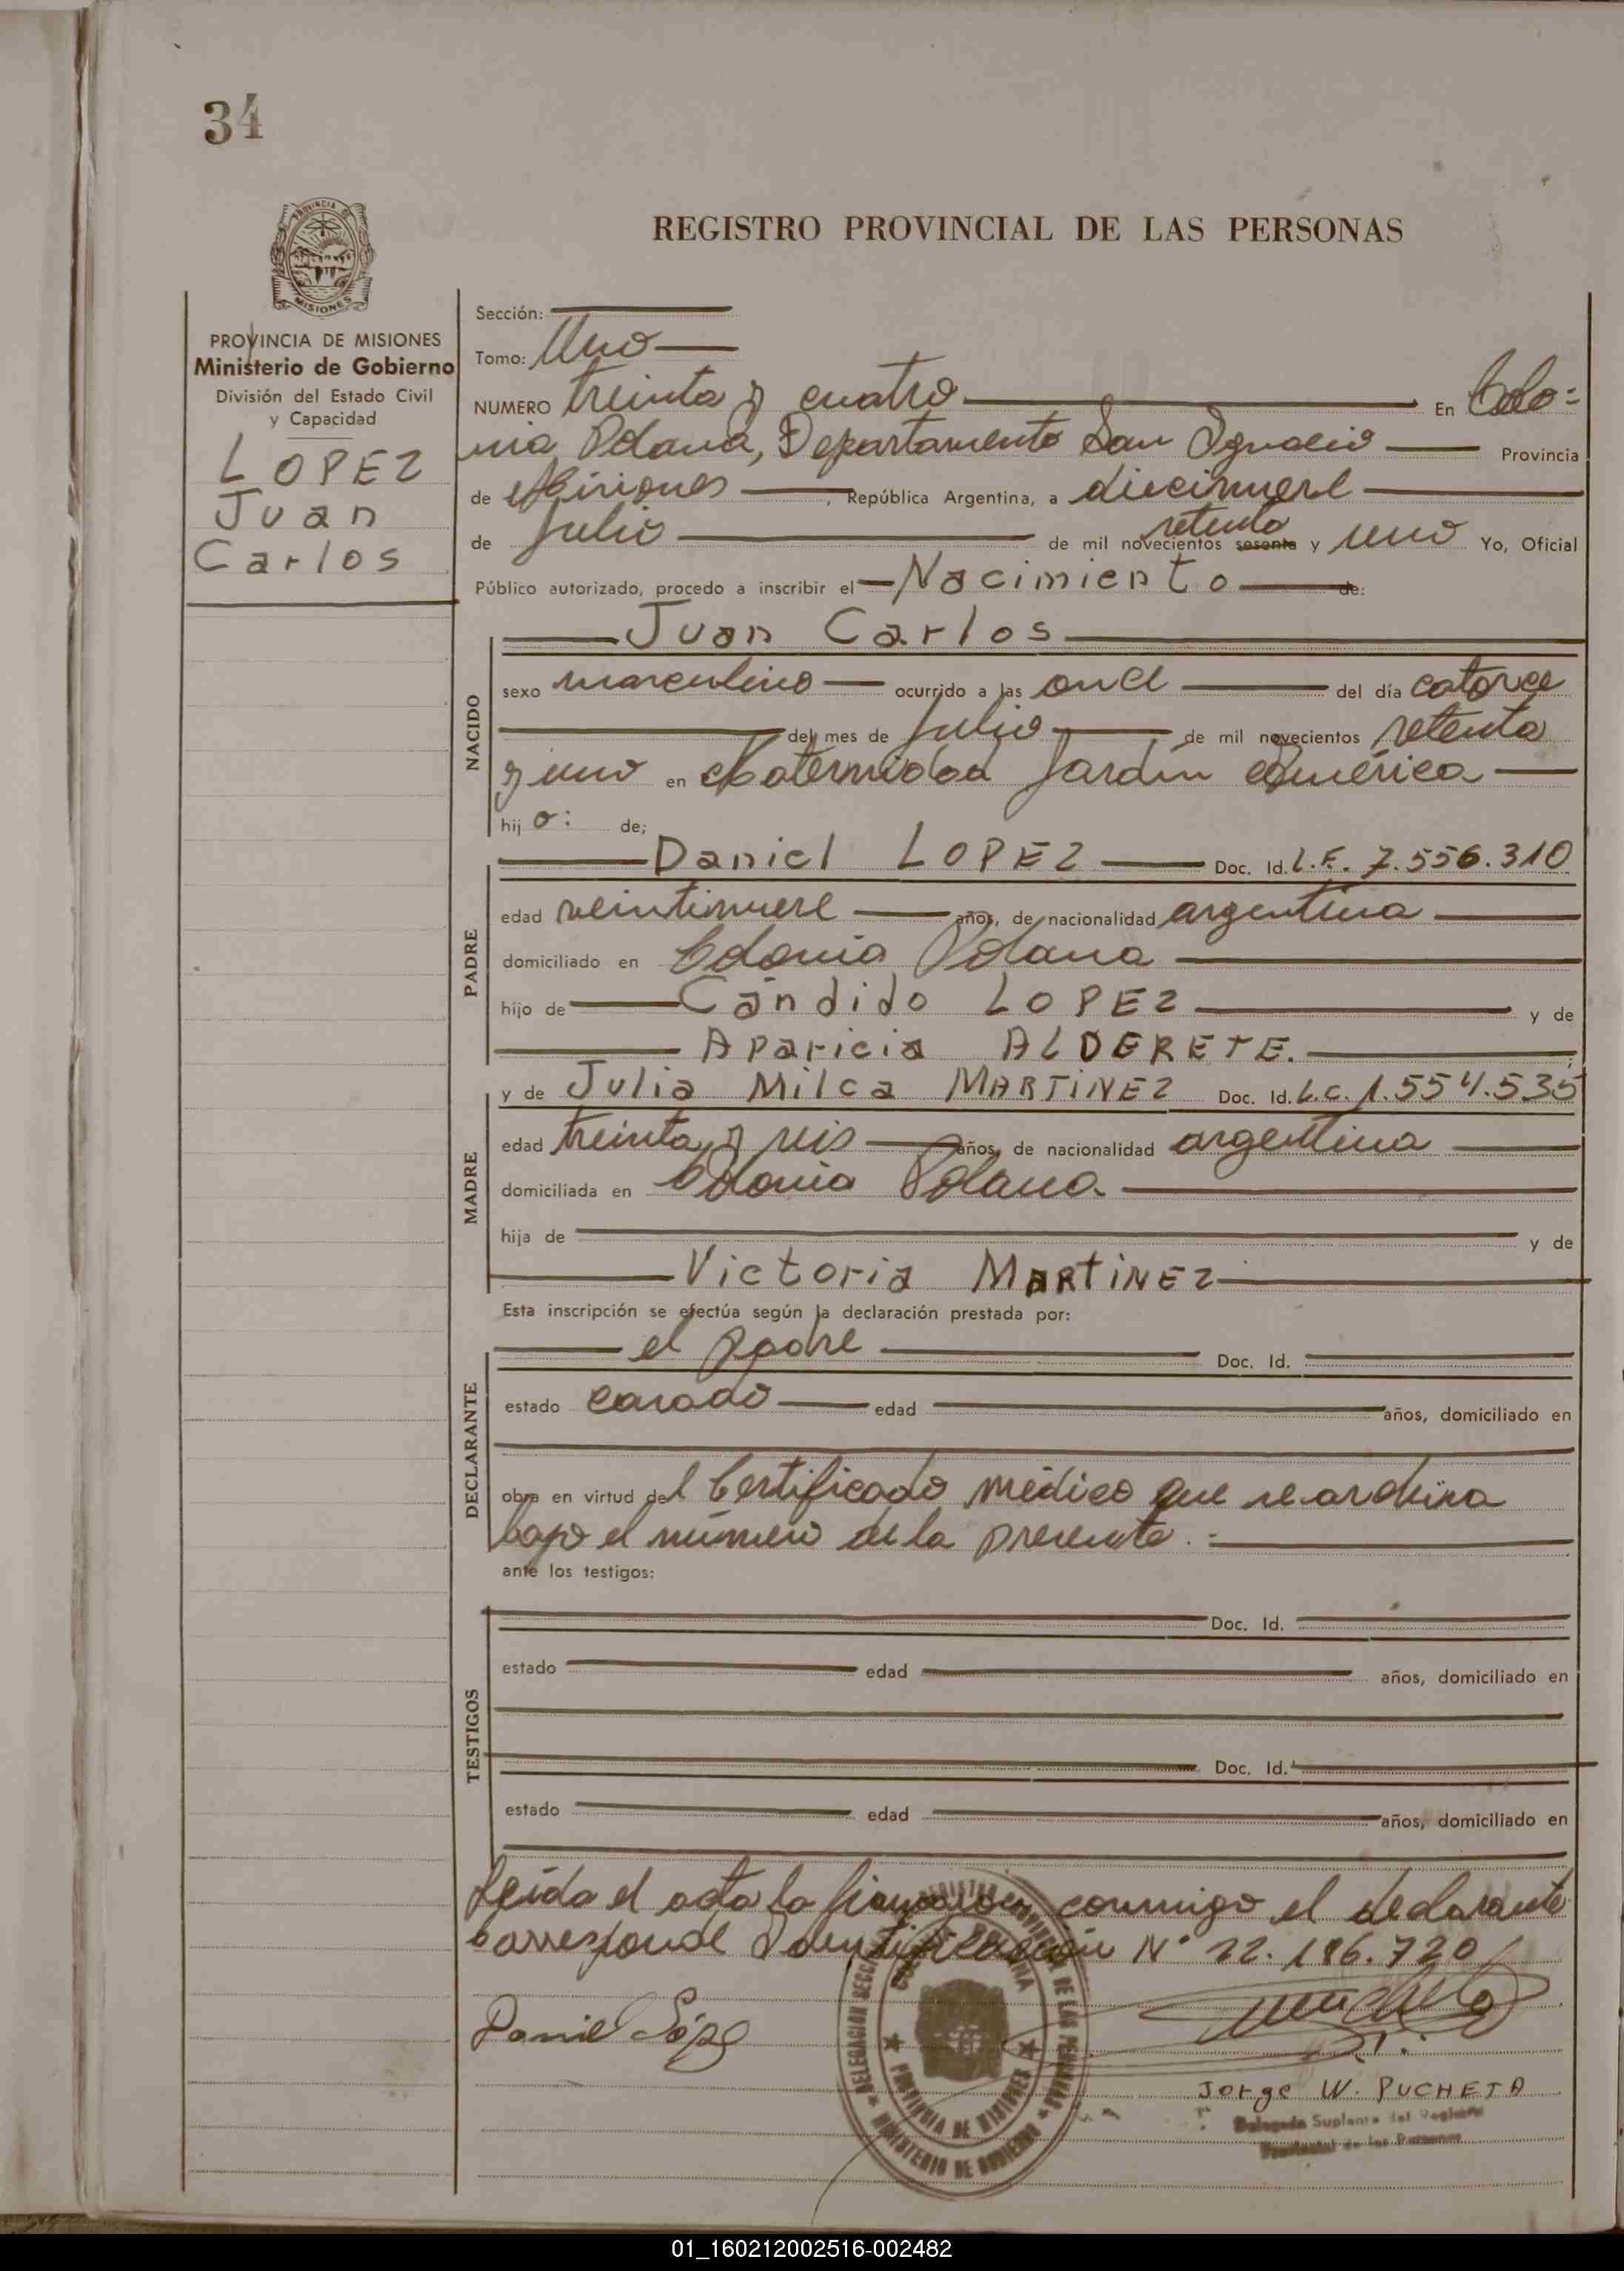 34
PROVINCIA DE
MISIONES
REGISTRO PROVINCIAL DE LAS PERSONAS
PROVINCIA DE MISIONES
Ministerio de Gobierno
División del Estado Civil
y Capacidad
LOPEZ
Juan
Carlos
Sección:
Tomo: Uno
NUMERO treinta y cuatro En Colo=
nia Polana, Departamento San Ignacio Provincia
de Misiones, República Argentina, a diecinueve
de julio de mil novecientos sesenta setenta y uno Yo, Oficial
Público autorizado, procedo a inscribir el Nacimiento de:
Juan Carlos
NACIDO
sexo masculino ocurrido a las once del día catorce
del mes de julio de mil novecientos setenta
y uno en Maternidad Jardín América
hijo: de;
PADRE
Daniel LOPEZ Doc. Id. L.E. 7.556.310
edad veintinueve años, de nacionalidad argentina
domiciliado en Colonia Polana
hijo de Cándido LOPEZ y de
Aparicia ALDERETE.
MADRE
y de Julia Milca MARTINEZ Doc. Id. L.C. 1.554.535
edad treinta y seis años, de nacionalidad argentina
domiciliada en Colonia Polana
hija de y de
Victoria MARTINEZ
Esta inscripción se efectúa según la declaración prestada por:
DECLARANTE
el padre Doc. Id.
estado casado edad años, domiciliado en
obra en virtud del Certificado médico que se archiva
bajo el número de la presente.
ante los testigos:
TESTIGOS
Doc. Id.
estado edad años, domiciliado en
Doc. Id.
estado edad años, domiciliado en
Leída el acta la firma conmigo el declarante
Corresponde Identificación N° 22.186.720
Daniel López
PROVINCIA DE MISIONES
MINISTERIO DE GOBIERNO
Jorge W. PUCHETA
Delegado Suplente del Registro
Provincial de las Personas
01_160212002516-002482